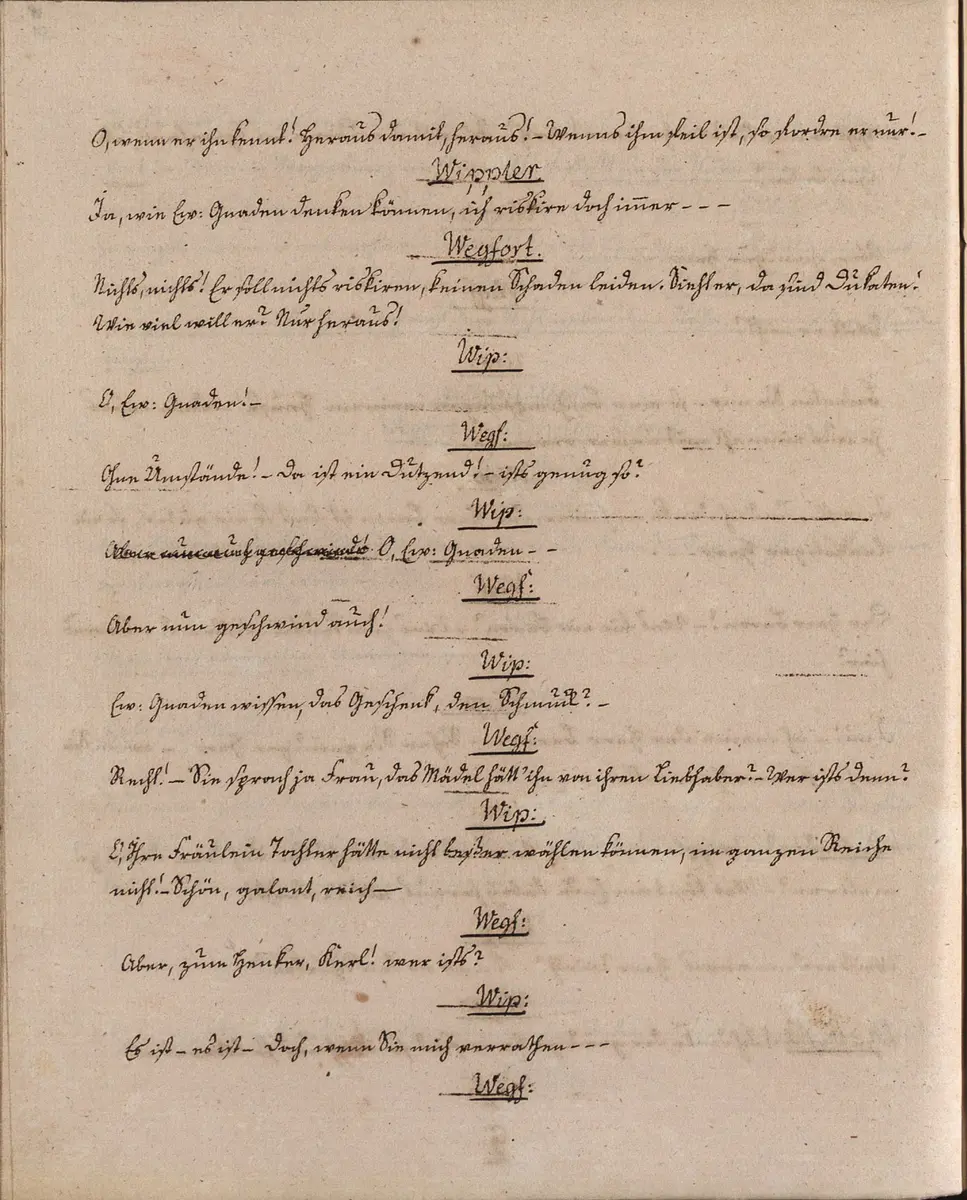 O, wenn er ihn kennt! Heraus damit, heraus! – Wenns ihm feil ist, so fordre er nur! –
Wippler.
Ja, wie Ew: Gnaden denken können, ich riskire doch im̄er – – –
Wegfort.
Nichts, nichts! Er soll nichts riskiren, keinen Schaden leiden. Sieht er, da sind Dukaten!
Wie viel will er? Nur heraus!
Wip:
O, Ew: Gnaden! –
Wegf:
Ohne Umstände! – Da ist ein Dutzend! – ists genug so?
Wip:
Aber nun auch geschwind! O, Ew: Gnaden – –
Wegf:
Aber nun geschwind auch!
Wip:
Ew: Gnaden wissen, das Geschenk, den Schmuck? –
Wegf:
Recht! – Sie sprach ja Frau, das Mädel hätt' ihn von ihren Liebhaber? – Wer ists denn?
Wip:
O, Ihre Fräulein Tochter hätte nicht beßer wählen können, im ganzen Reiche
nicht! – Schön, galant, reich —
Wegf:
Aber, zum Henker, Kerl! wer ists?
Wip:
Es ist – es ist – Doch, wenn Sie mich verrathen – – –
Wegf: